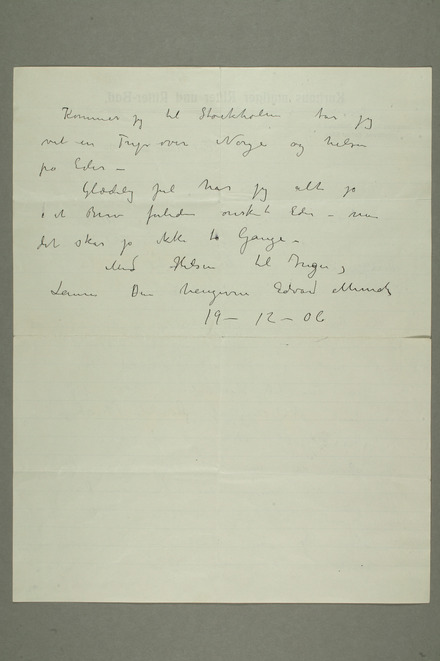 Kommer jg til Stockholm tar jeg
vel en Tur over Norge og hilser
på Eder –
Glædelig Jul har jeg alt jo
i et Brev forleden ønsket Eder – men
det skar jo ikke to Gange –
Med Hilsen til Inger,
Laura Din hengivne Edvard Munch
19 – 12 – 06